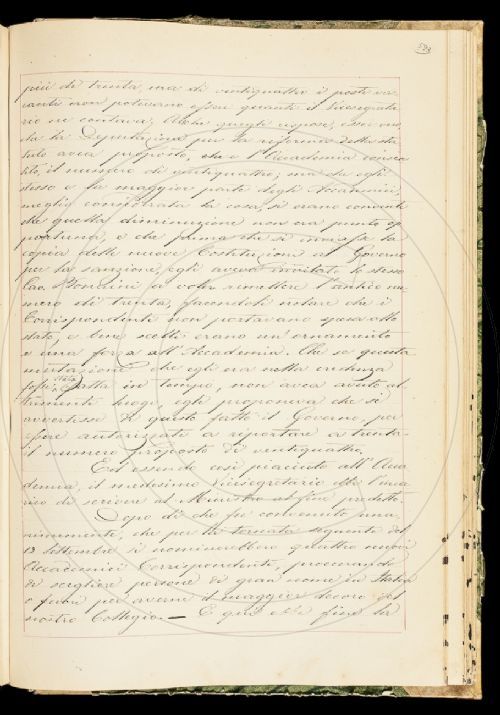 più di trenta, ma di ventiquattro i posti va-
canti non potevano essere quanti il Vicesegreta-
rio ne contava; Al che questi rispose, esser ve-
ro che la Deputazione per la riforma dello sta-
tuto avea proposto, che l'Accademia consen-
tì, il numero di ventiquattro; ma che egli
stesso e la maggior parte degli Accademici,
meglio considerata la cosa, si erano convinti
che quella diminuzione non era punto op-
portuna, e che prima che si inviasse la
copia delle nuove Costituzioni al Governo
per la sanzione, egli aveva invitato lo stesso
Cav. a voler rimettere l'antico nu-
mero di trenta, facendoli notare che i
Corrispondenti non portavano spesa allo
stato, e bene scelti erano un'ornamento
e una forza all'Accademia. Che se questa
mutazione che egli era nella credenza
fosse stata fatta in tempo, non avea avuto al-
trimenti luogo, egli proponeva che si
avvertisse di questo fatto il Governo, per
essere autorizzati a riportare a trenta
il numero proposto di ventiquattro.
Ed essendo così piaciuto all'Acca-
demia, il medesimo Vicesegretario ebbe l'inca-
rico di scrivere al Ministro al fine predetto.
Dopo di che fu convenuto una-
nimemente, che per la tornata seguente del
13 Settembre si nominerebbero quattro nuovi
Accademici Corrispondenti, procurando
di scegliere persone di gran nome in Italia
o fuori per averne il maggior decoro del
nostro Collegio. — E qui ebbe fine la